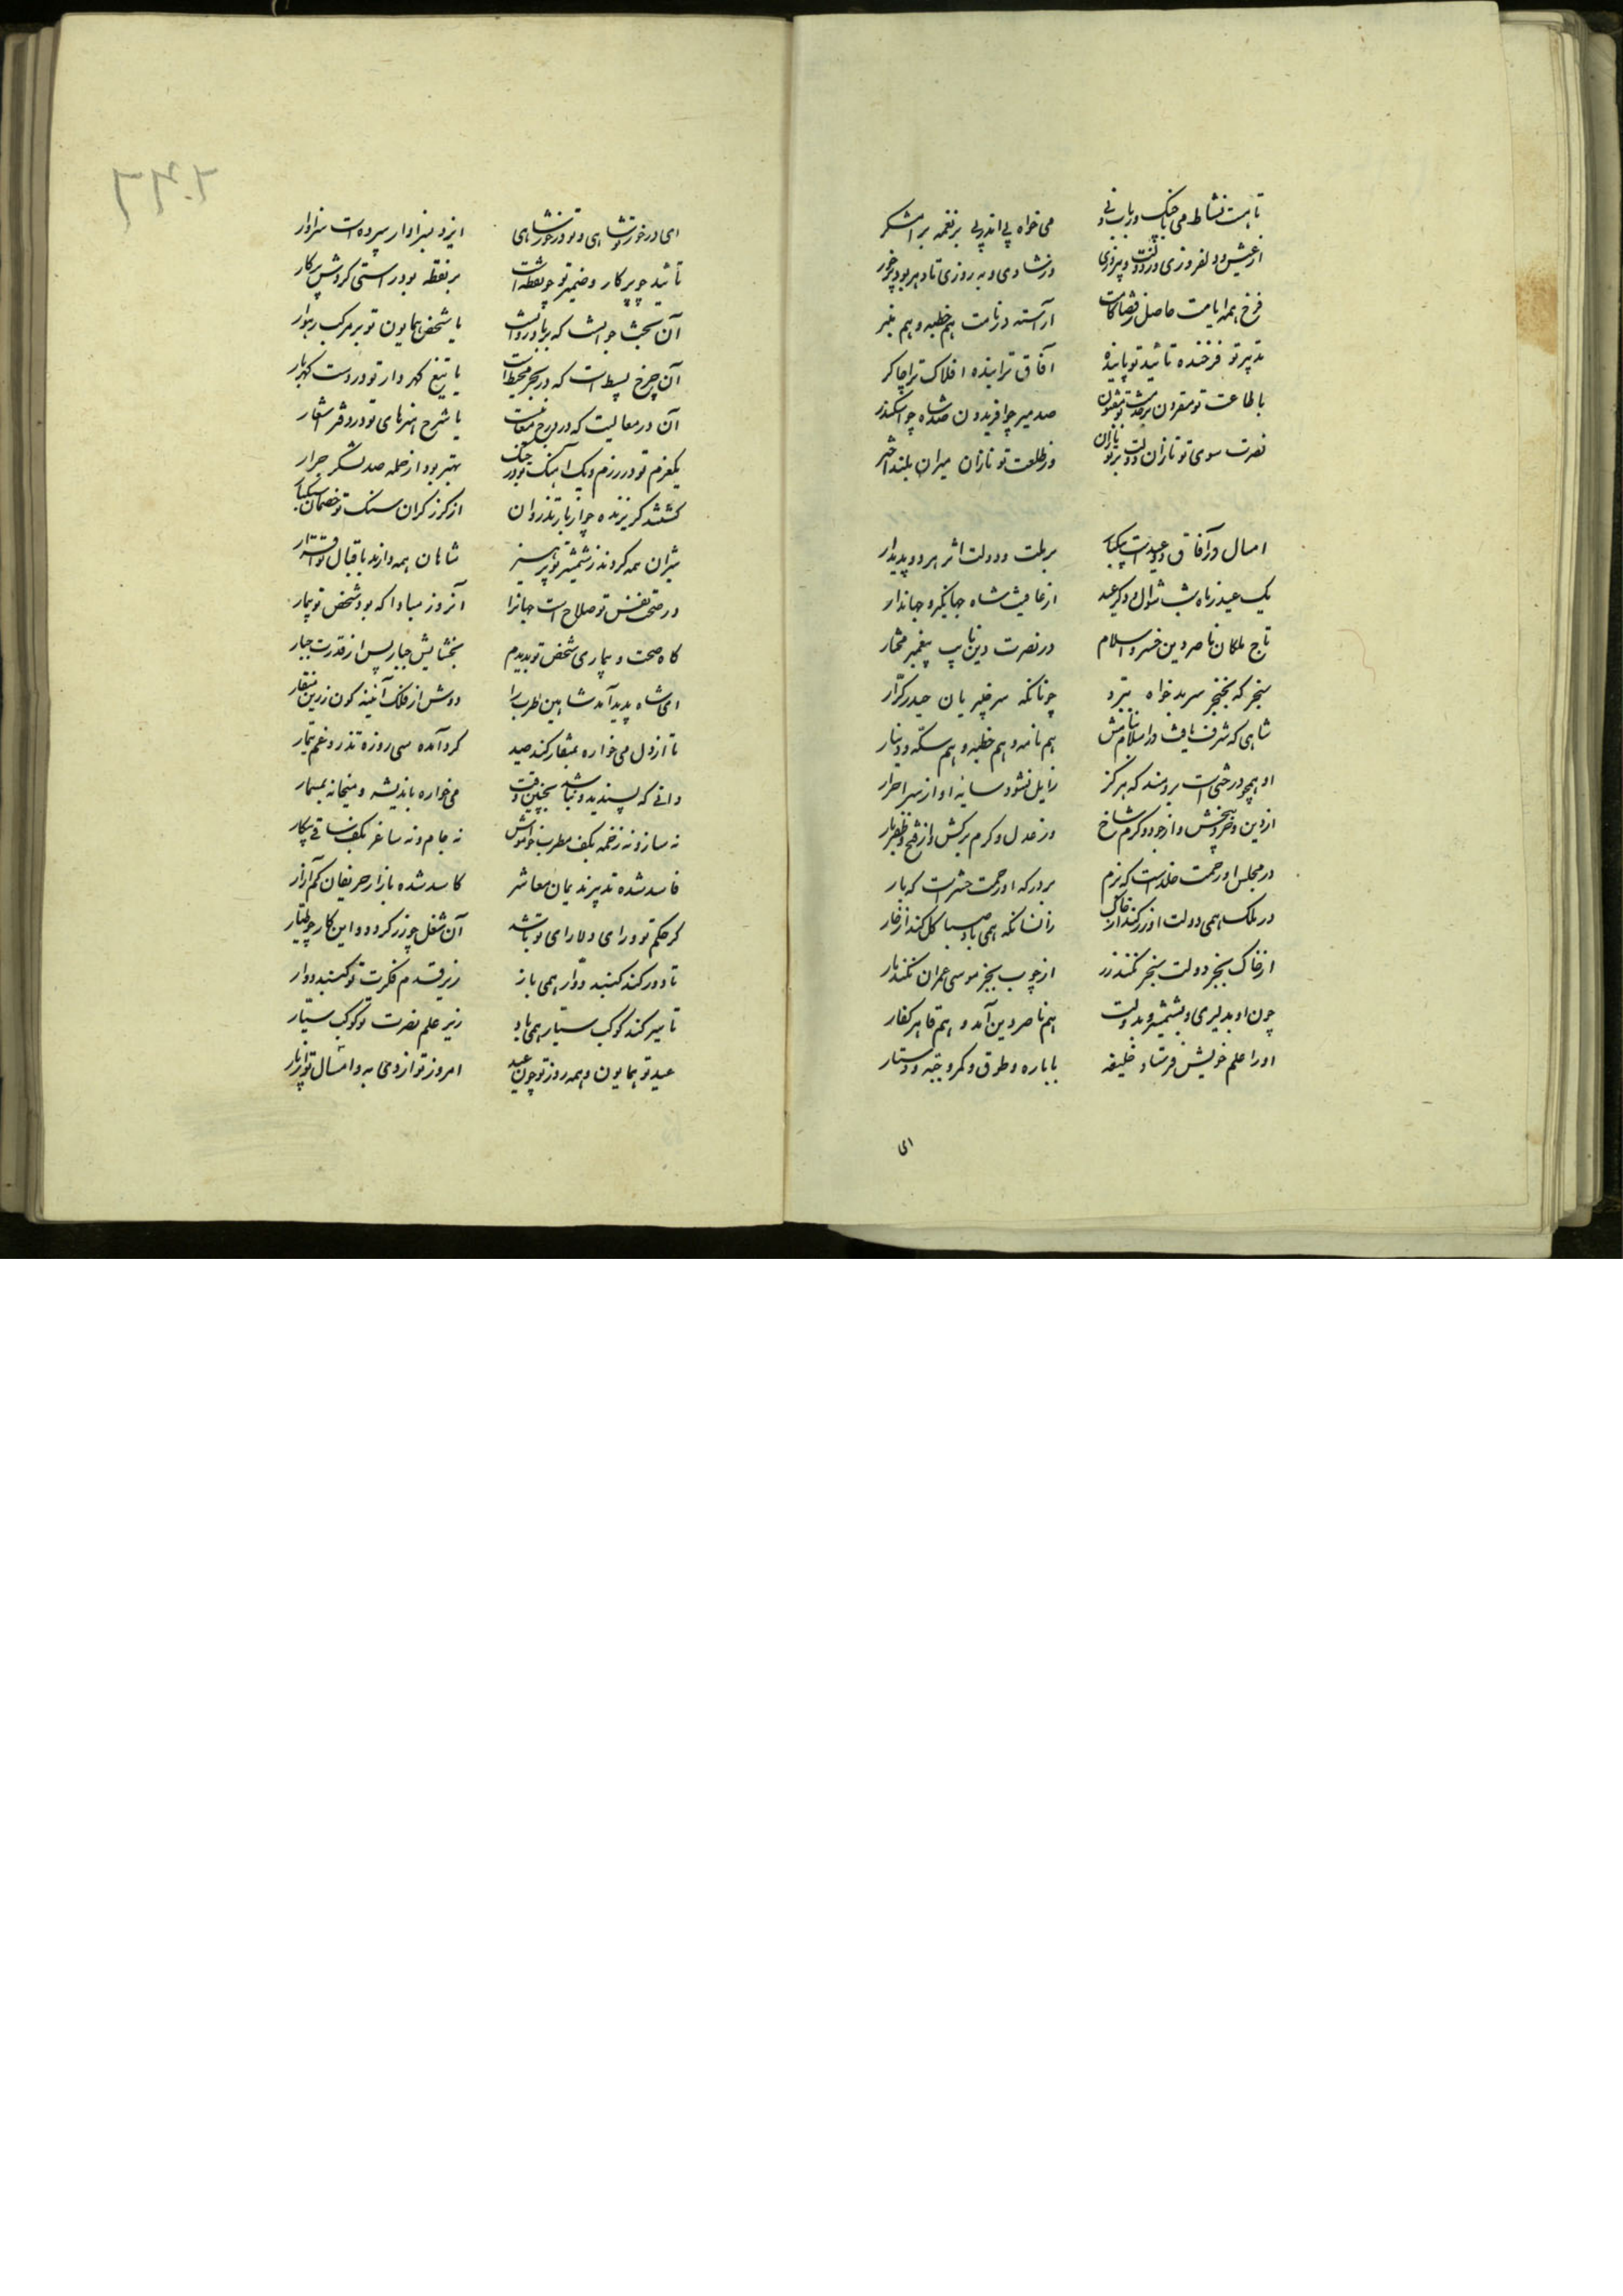 تا هست نشاط می با چنگ و رباب و نی    می خواه پی اندر پی بر نغمه برامشکر
از عیش و دلفروزی در دولت و پیروزی    در شادی و به روزی تا دهر بود میخور
فرخ همه ایامت حاصل ز قضا کامت    آراسته در نامت هم خطبه و هم منبر
تدبیر تو فرخنده تائید تو پاینده    آفاق ترا بنده افلاک ترا چاکر
با طاعت تو مقرون بر خدمت تو مفتون    صد میر چو افریدون صد شاه چو اسکندر
نصرت سوی تو تازان دولت بر تو یازان    وز طلعت تو نازان میران بلند اختر
امسال در آفاق دو عیدست بیکبار    بر ملت و دولت اثر هر دو پدیدار
یک عید ز ماه شب شوال و دکر عید    از عافیت شاه جهانگیر و جهاندار
تاج ملکان ناصر دین خسرو اسلام    در نصرت دین نایب پیغمبر مختار
سنجر که بخنجر سر بدخواه ببرد    چونانکه سر خیبریان حیدر کرّار
شاهی که شرف یافت در اسلام ز نامش    هم نامه و هم خطبه و هم سکّه و دینار
او همچو درختی است برومند که هرگز    زایل نشود سایه او از سر احرار
از دین و خرد بیخش و از جود و کرم شاخ    وز عدل و کرم برکش و از فتح و ظفر بار
در مجلس او رحمت خلدست که بزم    بر درکه او زحمت حشرست که بار
در ملک همی دولت او زر کند از خاک    زانسانکه همی باد صبا گل کند از خار
از خاک بجز دولت سنجر نکند زر    از چوب بجز موسی عمران نکند مار
چون او بدلیری و بشمشیر و بدولت    هم ناصر دین آمد و هم قاهر کفار
او را علم خویش فرستاد خلیفه    با باره و طوق و کمر و جبّه و دستار
ای
ای در خور تو شاهی و تو در خور شاهی    ایزد بسزاوار سپرده است سزاوار
تائید چو پرکار و ضمیر تو چو نقطه است    بر نقطه بود راستی کردش پرکار
آن بخت جوانست که    یا شخص همایون تو بر مرکب رهوار
آن چرخ بسیط است که در بحر محیط است    یا تیغ گهردار تو در دست گهربار
آن در معالیست که در درج    یا شرح هنرهای تو در دفتر اشعار
یکعزم تو در رزم و یک آهنگ تو در جنگ    بهتر بود از حمله صد لشکر جرار
کشتند گریزنده چو از باز تذروان    از گرز گران سنگ تو خصمان سبکبار
شیران همه کردند ز شمشیر تو پرهیز    شاهان همه دارند باقبال تو اقرار
در صحت نفس تو صلاح است جهانرا    آنروز مبادا که بود شخص تو بیمار
گاه صحت و بیماری شخص تو بدیدم    بخشایش جبار پس از قدرت جبار
ای شاه پدید آمد شاهین طرب را    دوش از فلک آینه گون زرین منقار
تا از دل می خواره بمنقار کند صید    گرد آمده سی روزه تذرو غم تیمار
دانی که پسندیده نباشد بچنین وقت    می خواره باندیشه و میخانه بمسمار
نه ساز و نه زخمه بکف مطرب خوش    نه جام و نه ساغر بکف ساقی بیکار
فاسد شده تدبیر ندیمان معاشر    کاسد شده بازار حریفان کم آزار
گر حکم تو و رای دلارای تو باشد    آن شغل چو زر گردد و این کار چو طیار
تا دور کند گنبد دوّار همی باز    زیر قدم فکرت تو گنبد دوار
تا سیر کند کوکب سیّار همی باد    زیر علم نصرت تو کوکب سیّار
عید تو همایون و همه روز تو چون عید    امروز تو از دی به و امسال تو از پار